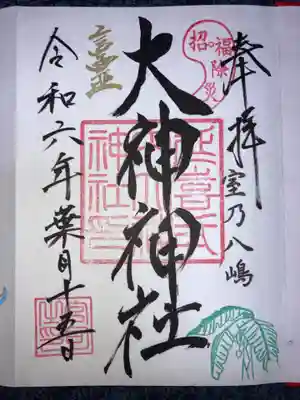 奉拝
室乃八嶋
招福除災
大神神社
令和六年葉月十五日